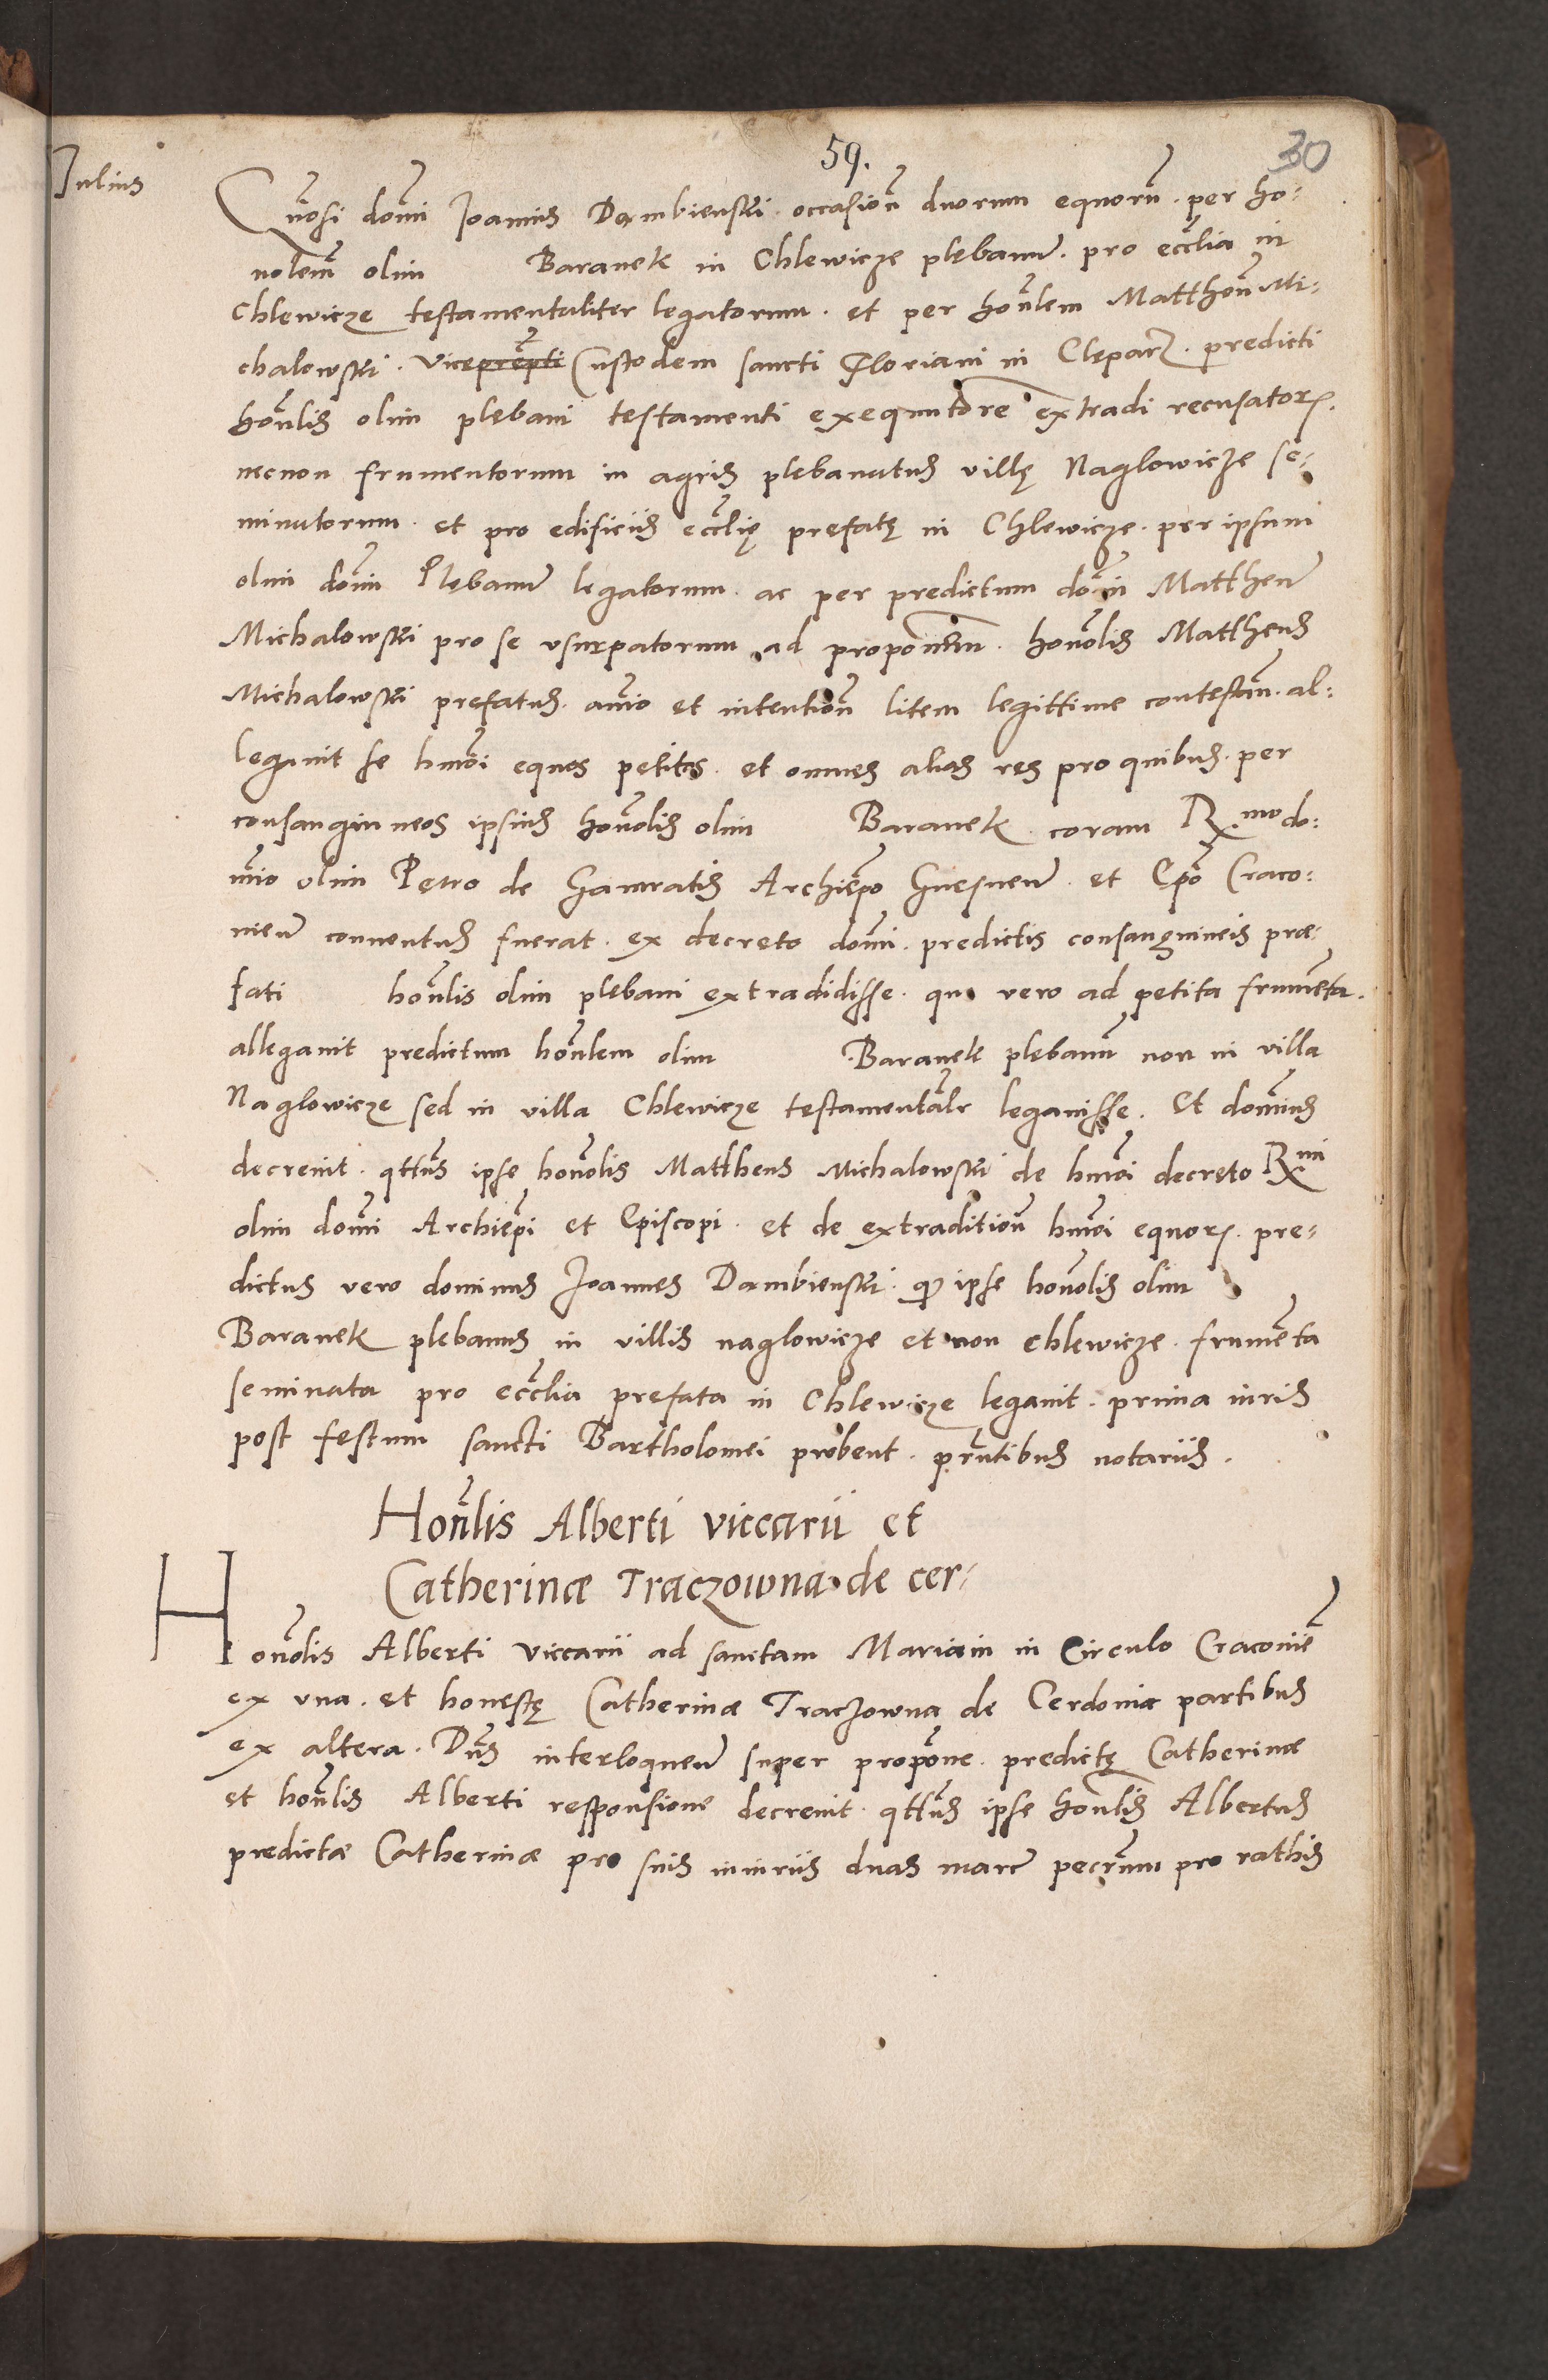 59.
30
Julius
Gnosi domi Joannis Dambienski occasion duorum equorum per ho:
nolem olim Baranek in Chlewicze plebanum pro ecclia in
Chlewicze testamentaliter legatorum. et per honlem Mattheum Mi:
chalowski. Viceprepti Custodem sancti Floriani in Cleparz. predicti
honlis olim plebani testamenti exequutore extradi recusatorum.
necnon frumentorum in agris plebanatus villę Naglowicze se:
minatorum. et pro edificiis ecclię prefatę in Chlewicze. per ipsum
olim domi Plebanum legatorum. ac per predictum domin Mattheum
Michalowski pro se usurpatorum ad proponendum. honolis Mattheus
Michalowski prefatus. animo et intention litem legittime contestan. al:
legavit se hmoi equos petitos. et omnes alias res pro quibus. per
consanguineos ipsius honolis olim Baranek. coram Rmo do:
mino olim Petro de Gamratis Archiepo Gnesnen. et Epo Craco:
nien conventus fuerat. ex decreto domi. predictis consanguineis præ:
fati honlis olim plebani extradidisse. quo vero ad petita frumenta.
allegavit predictum honlem olim Baranek plebanum non in villa
Naglowicze sed in villa Chlewicze testamentalr legavisse. Et dominus
decrevit. qttus ipse honolis Mattheus Michalowski de hmoi decreto Rmi
olim domi Archiepi et Episcopi. et de extradition hmoi equorum. pre:
dictus vero dominus Joannes Dambienski. quod ipse honolis olim
Baranek plebanus in villis naglowicze et non chlewicze. frumenta
seminata pro ecclia prefata in Chlewicze legavit. prima iuris
post festum sancti Bartholomei probent. prntibus notariis.
Honlis Alberti viccarii et
Catherinæ Traczowna de cer:
Honolis Alberti viccarii ad sanctam Mariam in Circulo Cracovien
ex una. et honestę Catherinæ Traczowna de Cerdonia partibus
ex altera. Dns interloquen super propone. predictę Catherinæ
et honlis Alberti responsione decrevit. qttus ipse honlis Albertus
predictæ Catherinæ pro suis iniuriis duas marc pecunm pro rathis